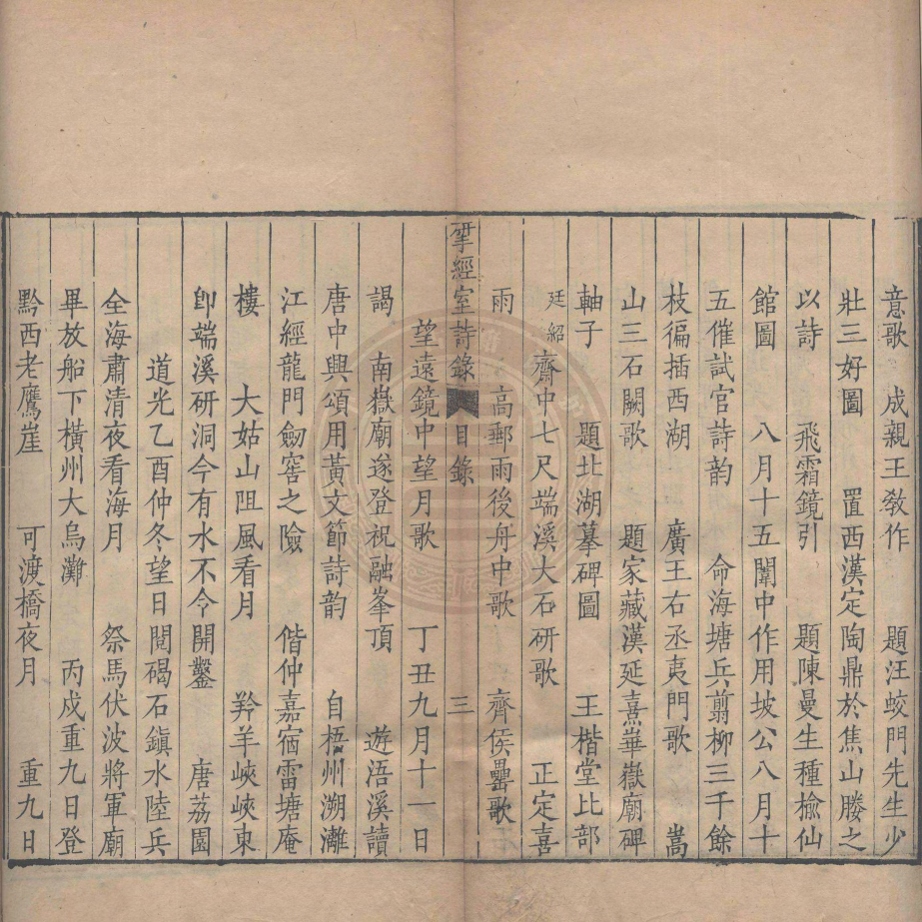 意歌　成親王敎作　題汪蛟門先生少
壯三好圖　置西漢定陶鼎於焦山媵之
以詩　飛霜鏡引　題陳曼生種榆仙
館圖　八月十五闈中作用坡公八月十
五催試官詩韵　命海塘兵翦柳三千餘
枝徧插西湖　廣王右丞夷門歌　嵩
山三石闕歌　題家藏漢延熹華嶽廟碑
軸子　題北湖摹碑圖　王楷堂比部
廷紹齋中七尺端溪大石研歌　正定喜
雨　高郵雨後舟中歌　齊侯罍歌
揅經室詩錄　目錄　三
望遠鏡中望月歌　丁丑九月十一日
謁　南嶽廟遂登祝融峯頂　遊浯溪讀
唐中興頌用黃文節詩韵　自梧州溯灕
江經龍門劒窖之險　偕仲嘉宿雷塘庵
樓　大姑山阻風看月　羚羊峽峽東
卽端溪研洞今有水不令開鑿　唐荔園
道光乙酉仲冬望日閱碣石鎭水陸兵
全海肅清夜看海月　祭馬伏波將軍廟
畢放船下橫州大烏灘　丙戍重九日登
黔西老鷹崖　可渡橋夜月　重九日